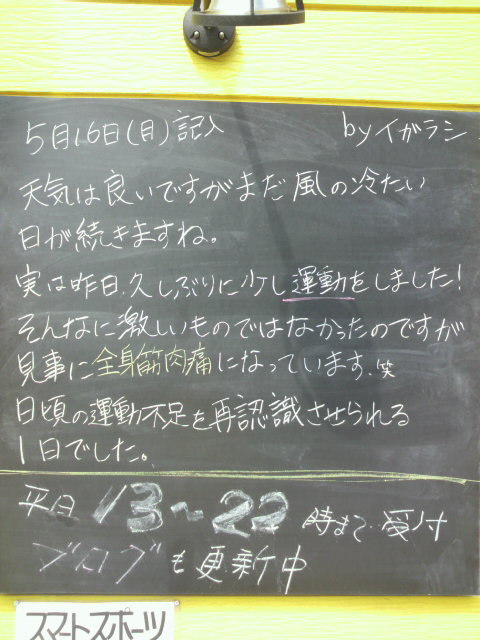 5月16日(月)記入 byイガラシ
天気は良いですがまだ風の冷たい
日が続きますね。
実は昨日、久しぶりに少し運動をしました!
そんなに激しいものではなかったのですが
見事に全身筋肉痛になっています。笑
日頃の運動不足を再認識させられる
1日でした。
平日 13~22 時まで受付
ブログも更新中
スマートスポーツ